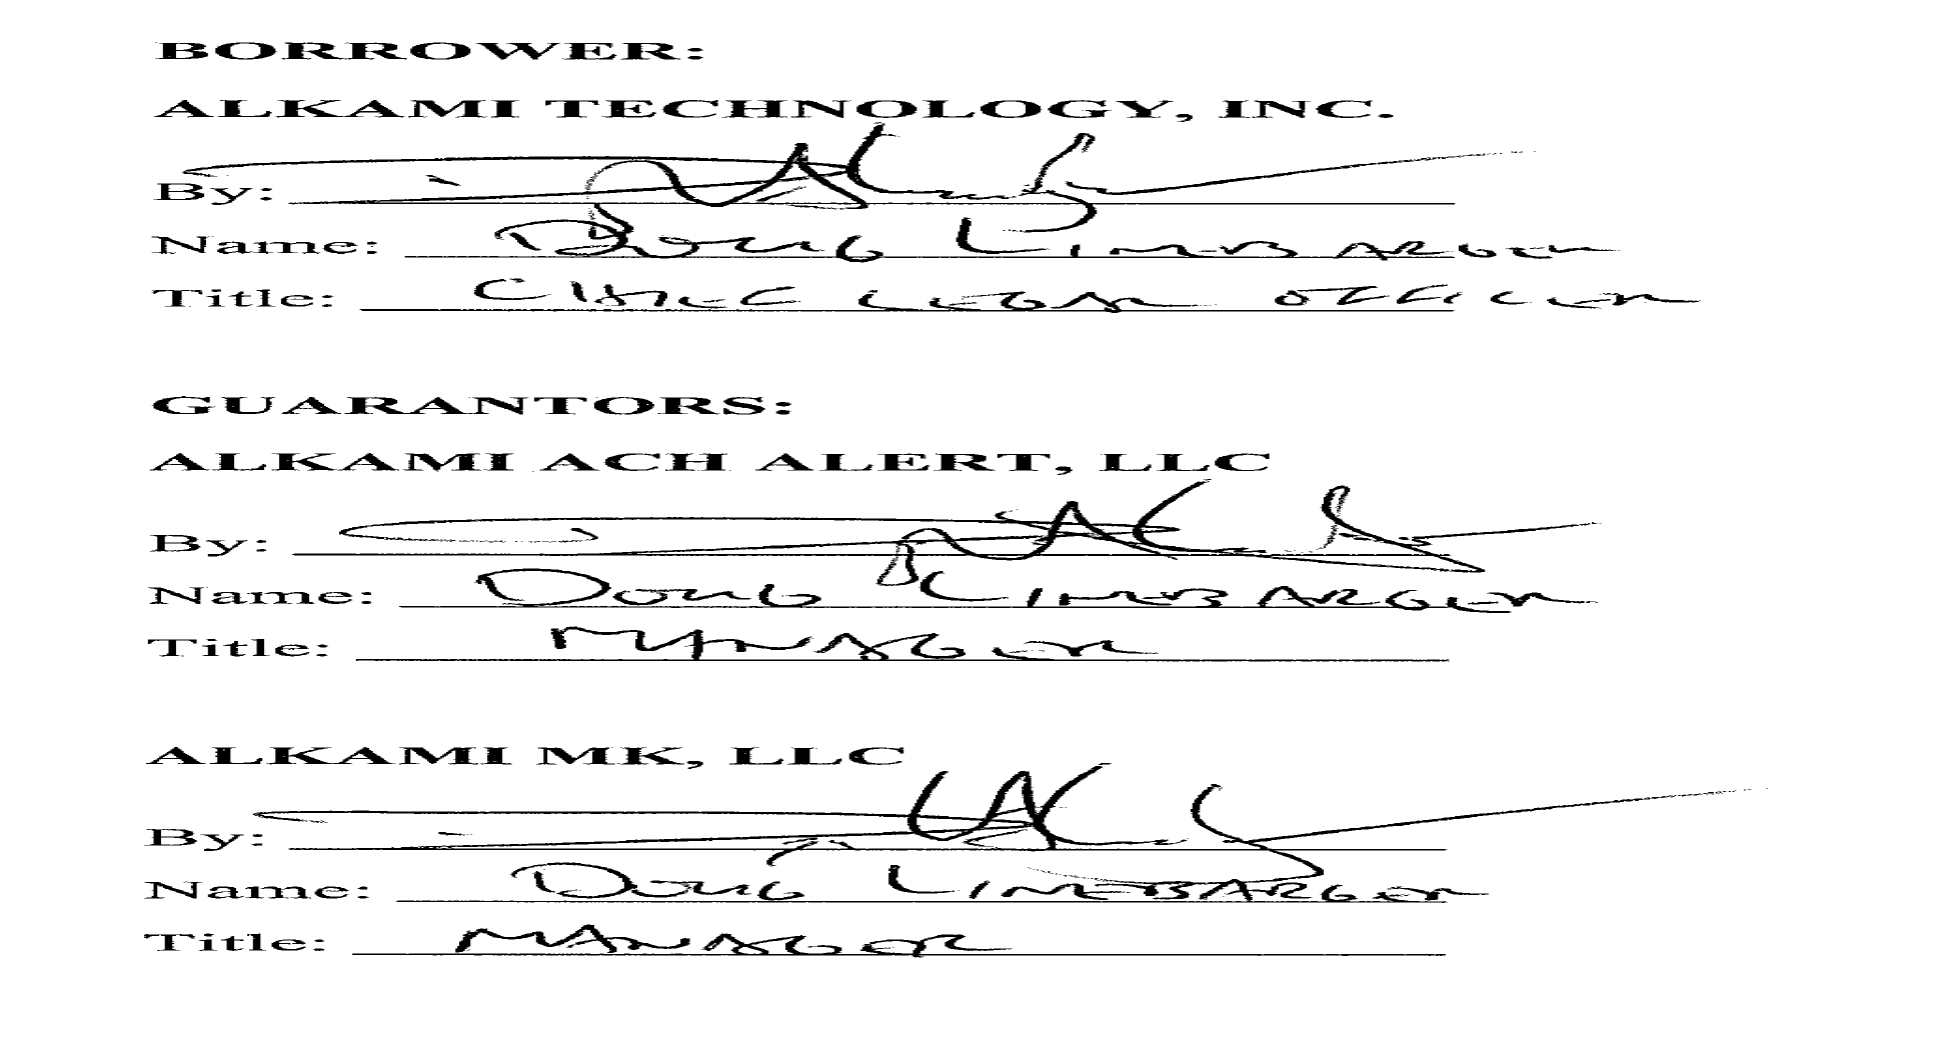 BORROWER:
ALKAMI TECHNOLOGY, INC.
By:
Name: DOUG LINEBARGER
Title: CHIEF LEGAL OFFICER
GUARANTORS:
ALKAMI ACH ALERT, LLC
By:
Name: DOUG LINEBARGER
Title: MANAGER
ALKAMI MK, LLC
By:
Name: DOUG LINEBARGER
Title: MANAGER